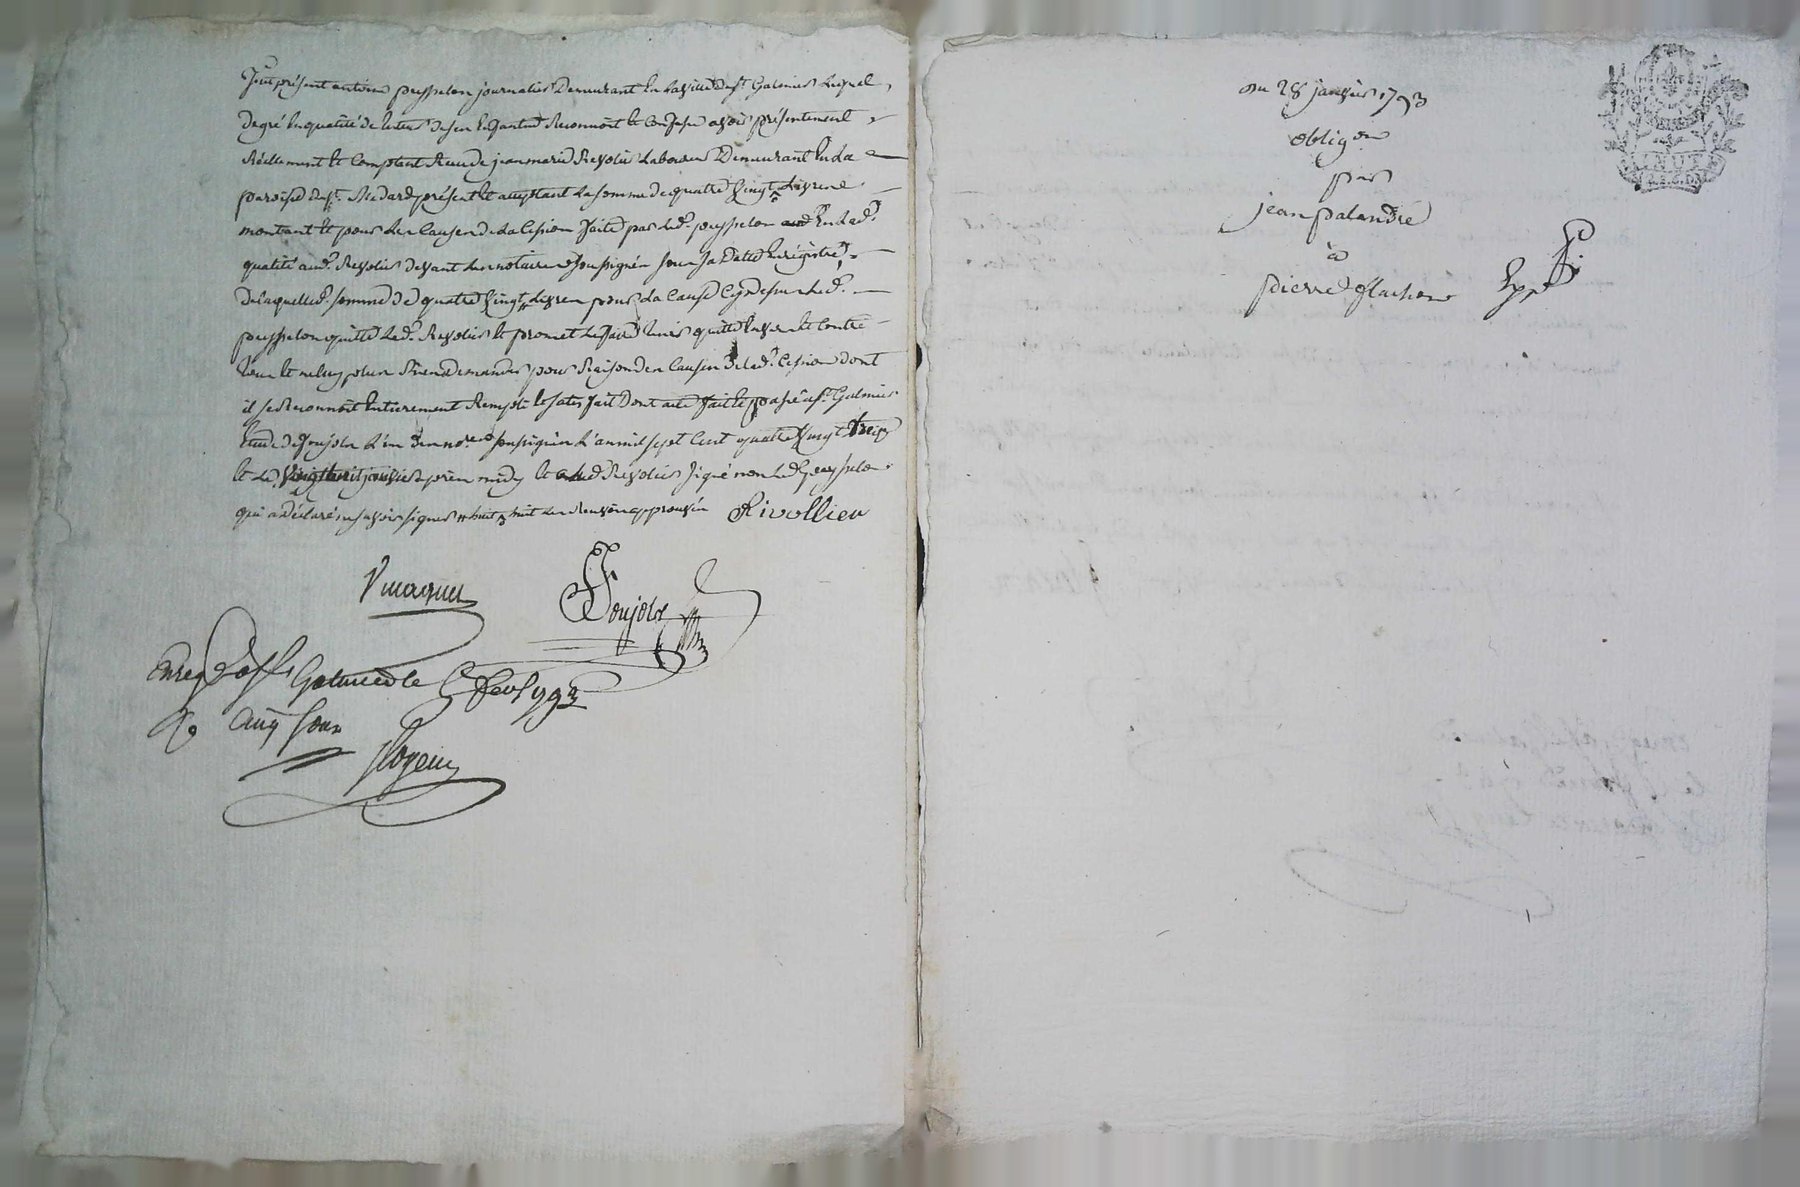 fut présent antoine peysselon journalier Demeurant En La ville de st Galmier Lequel
de gré En qualité de tuteur de ses Enfants Reconnoit Et Confesse avoir présentement
Réellement Et Comptant Reçu de jean marie Revolier Laboureur Demeurant En La
paroisse de st. Medard présent Et acceptant La somme de quatre Vingt Livres
montant Et pour Les Causes de La Cession faite par led. peysselon En lad.
qualité aud. Revolier devant Les notaires soussignés sous sa Datte Enregistrée
de laquelle somme de quatre Vingt Livres pour La Cause Cy dessus Led.
peysselon quitte Led. Revolier Et promet Le faire tenir quitte Envers Et Contre
tous Et ne luy plus Rien demander pour Raison des Causes de lad. Cession dont
il se Reconnoit Entierement Rempli Et satisfait Dont acte fait Et passé a st. Galmier
Etude de Soujolx L'un des nores soussignés L'an mil sept Cent quatre Vingt treize
Et Le Vingt huit janvier après midy Et Led Revolier signé non Led Peysselon
qui a déclaré ne savoir signer huit huit Les Renvois approuvés Rivollier
Soujolx
Enreg a st Galmier le fevr 1793
Cinq sous
du 28 janvier 1793
obligon
par
jean palandre
à
pierre flachon Exp